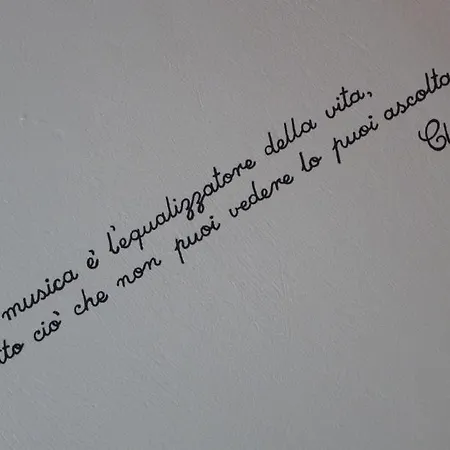 musica è l'equalizzatore della vita,
tto ciò che non puoi vedere lo puoi ascolta